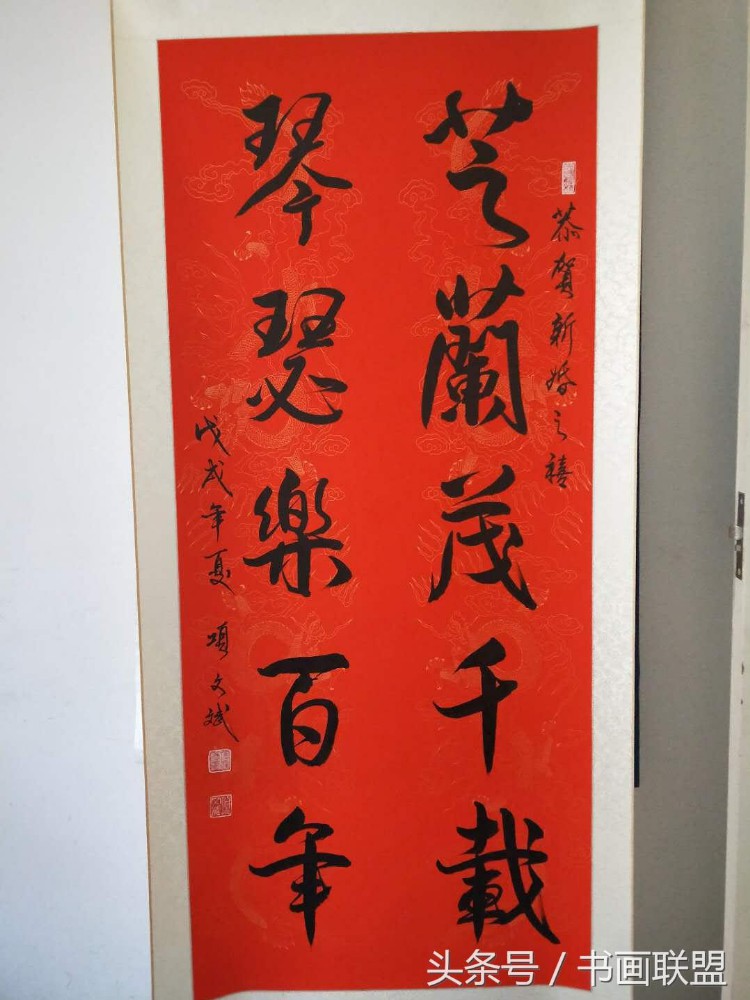 恭贺新婚之禧
芝蘭茂千載
琴瑟樂百年
戊戌年夏 項文斌
头条号 / 书画联盟